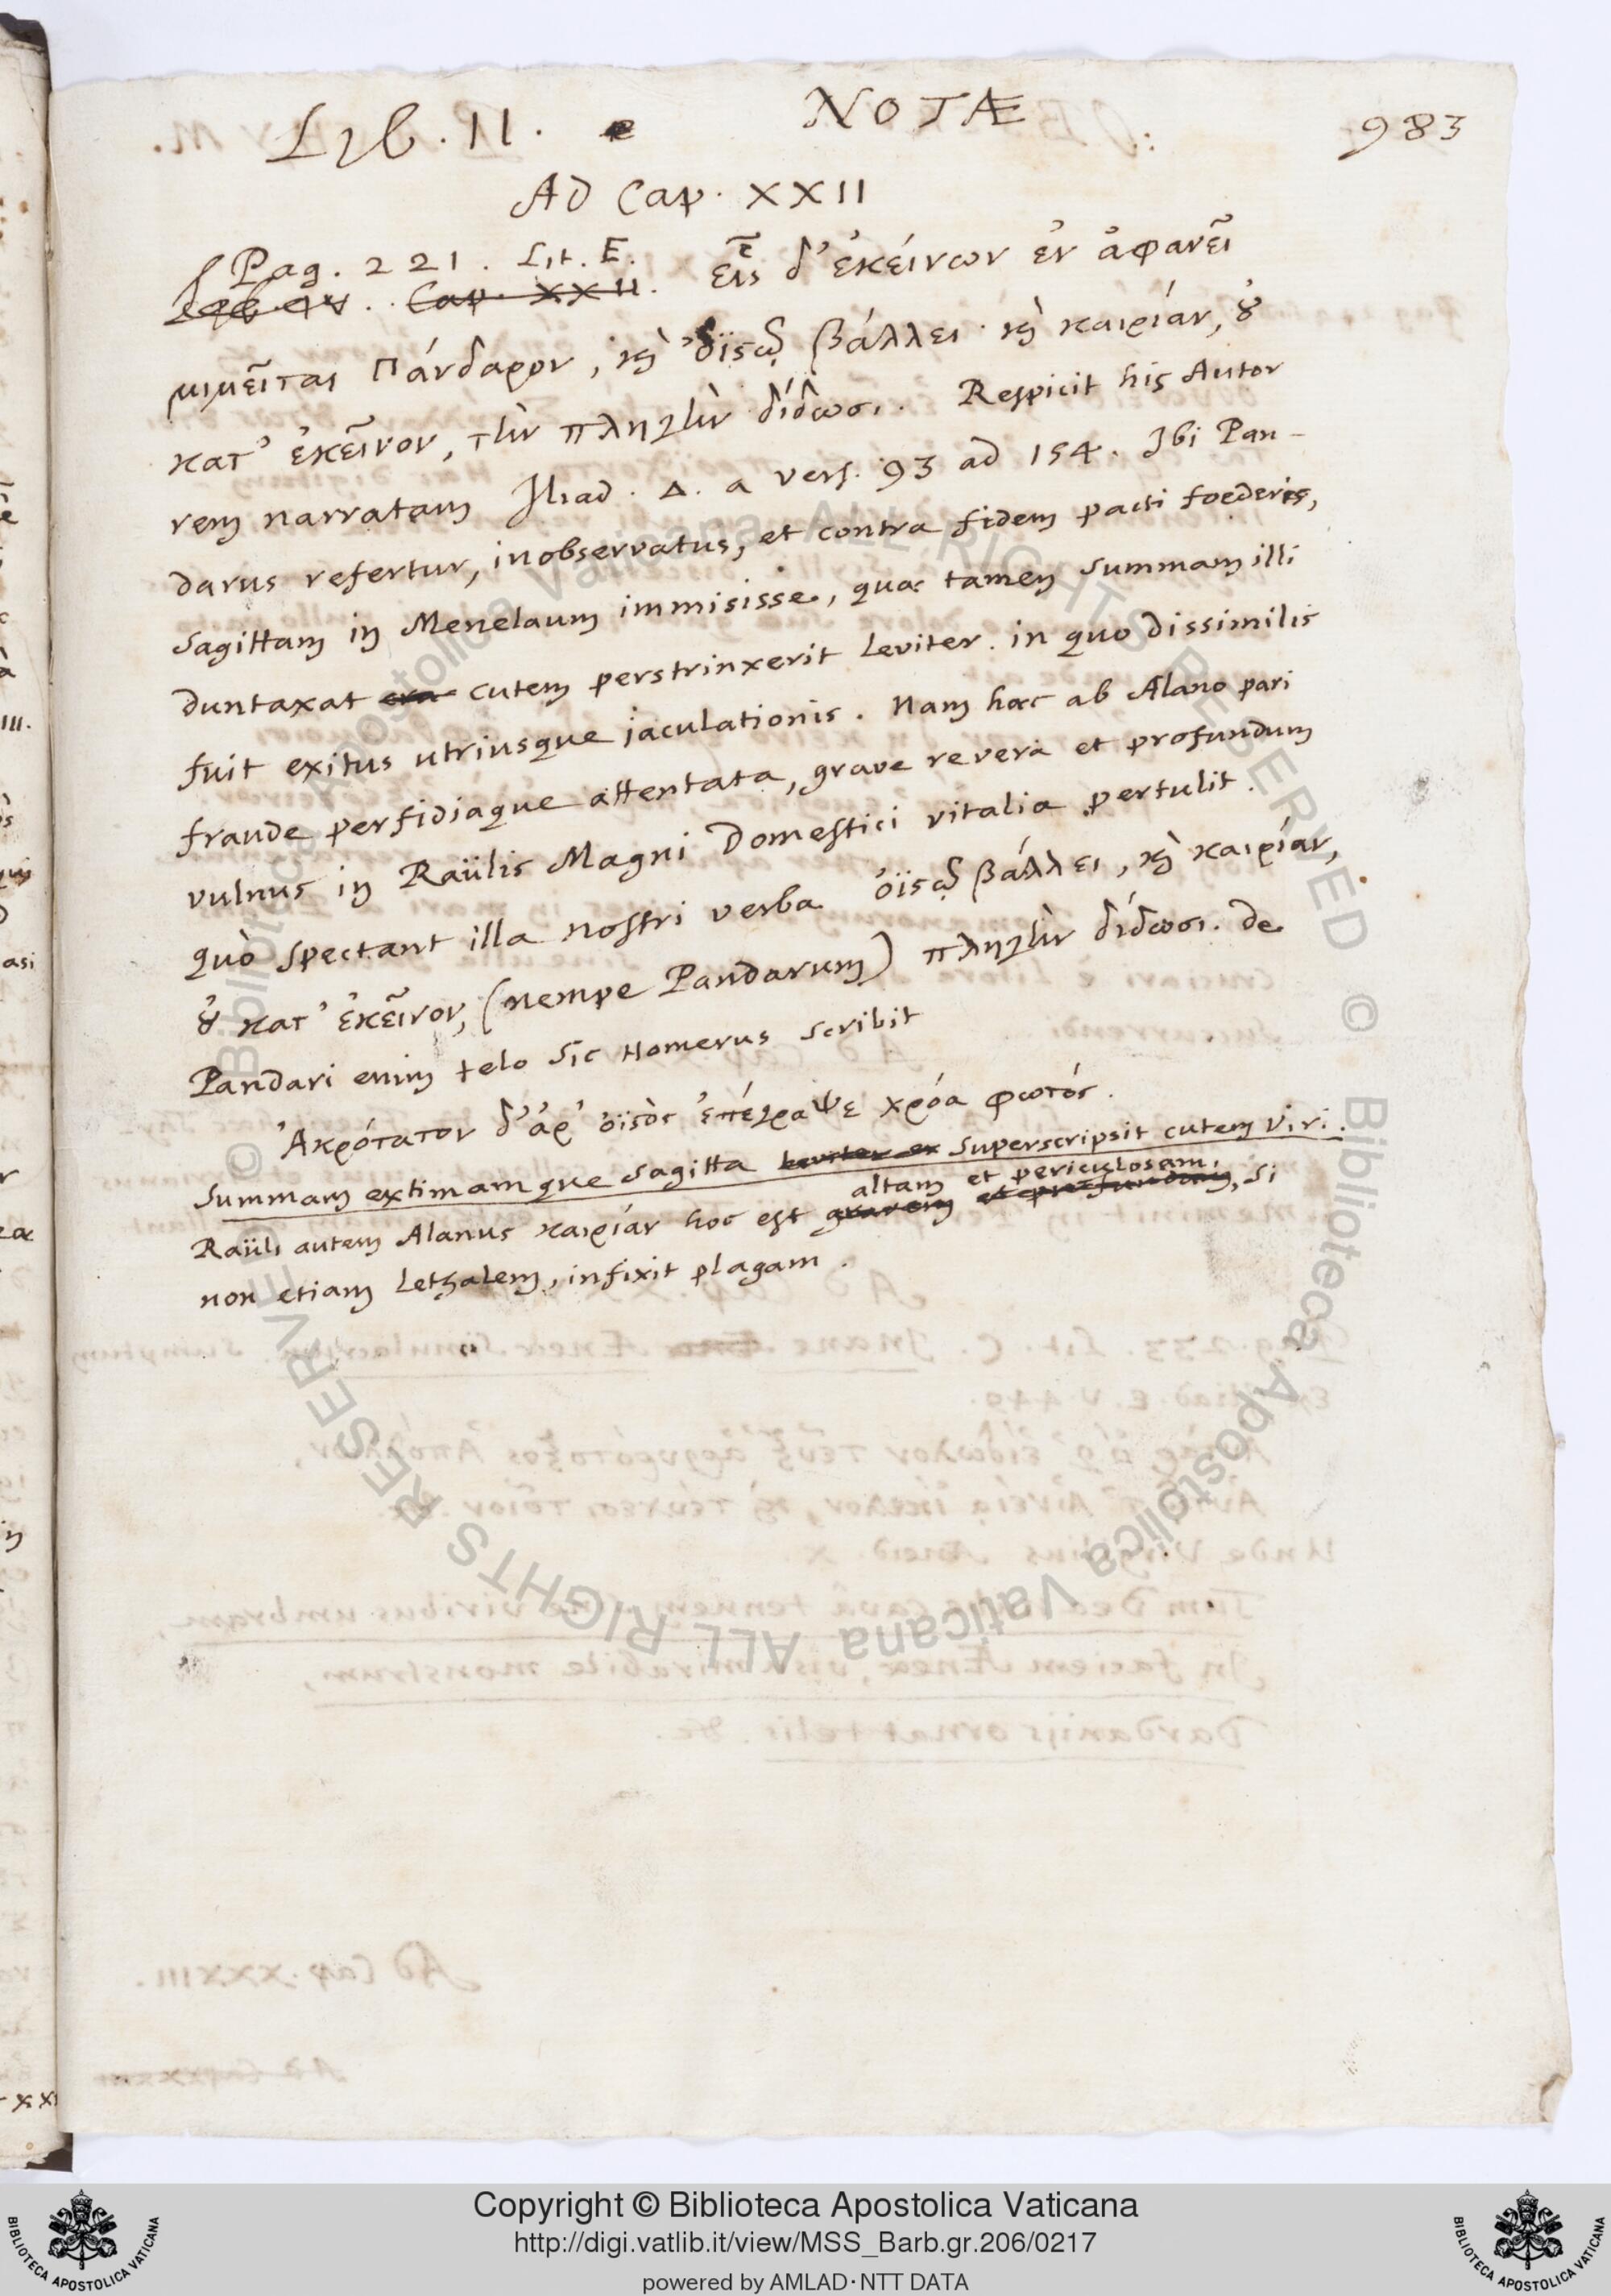 Lib. II. NOTÆ 983
Ad Cap. XXII
Pag. 221. Lit. E. εἷς δ' ἐκείνων ἐν ἀφανεῖ
Cap. XXII.
μιμεῖται Πάνδαρον, καὶ ὀϊστῷ βάλλει· καὶ καιρίαν, οὐ
κατ' ἐκεῖνον, τὴν πληγὴν δίδωσι. Respicit his Autor
rem narratam Iliad. Δ. a vers. 93 ad 154. Ibi Pan-
darus refertur, inobservatus, et contra fidem pacti foederis,
sagittam in Menelaum immisisse, quae tamen summam illi
duntaxat cra cutem perstrinxerit leviter. in quo dissimilis
fuit exitus utriusque jaculationis. Nam haec ab Alano pari
fraude perfidiaque attentata, grave revera et profundum
vulnus in Raülis Magni Domestici vitalia pertulit.
quò spectant illa nostri verba ὀϊστῷ βάλλει, καὶ καιρίαν,
οὐ κατ' ἐκεῖνον, (nempe Pandarum) πληγὴν δίδωσι. de
Pandari enim telo sic Homerus scribit
Ἀκρότατον δ' ἀρ' ὀϊστὸς ἐπέγραψε χρόα φωτός.
Summam extimamque sagitta leviter ex superscripsit cutem viri.
altam et periculosam,
Raüli autem Alanus καιρίαν hoc est gravem et profundam, si
non etiam lethalem, infixit plagam.
Copyright © Biblioteca Apostolica Vaticana
http://digi.vatlib.it/view/MSS_Barb.gr.206/0217
powered by AMLAD·NTT DATA